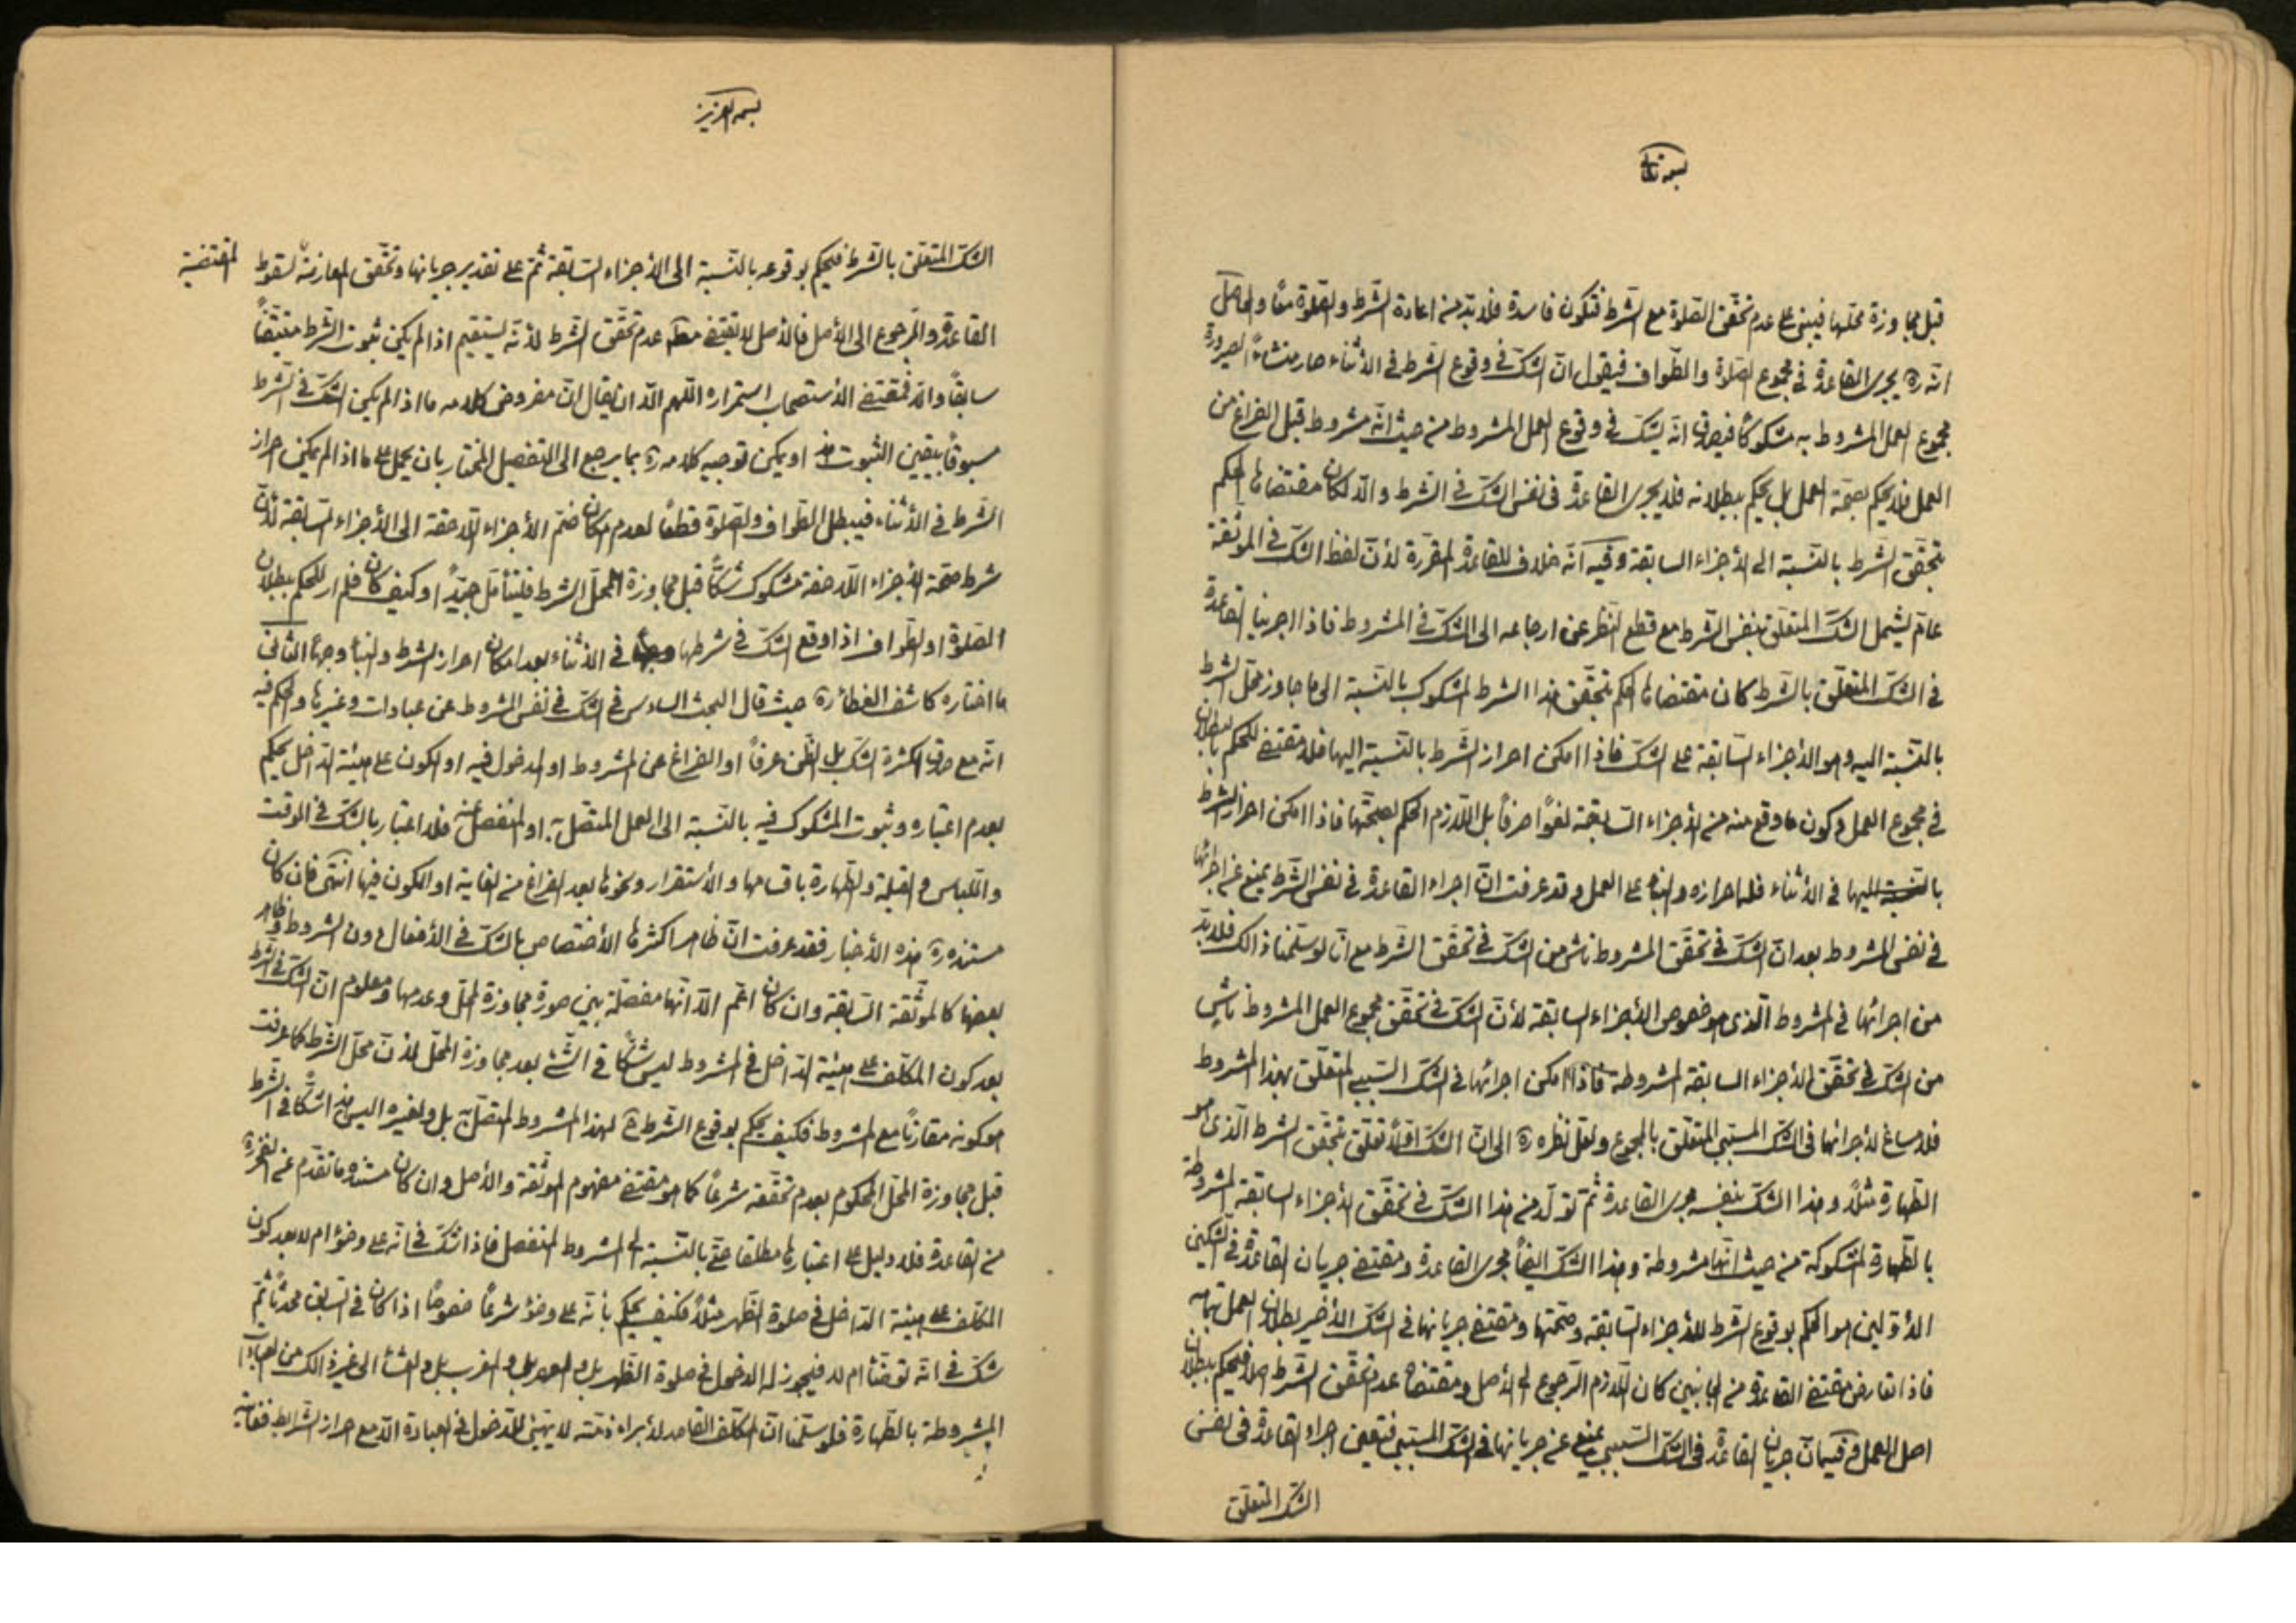 بسمه تعالى
قبل مجاوزة محلها فيبنى على عدم تحقق الصلوة مع الشرط فتكون فاسدة فلا بد من اعادة الشرط والصلوة معًا والحاصل
انه ره يجرى القاعدة في مجموع الصلوة والطواف فيقول ان الشك في وقوع الشرط في الاثناء صار منشاءً لصيرورة
مجموع العمل المشروط به مشكوكًا فيصدق انه يشك في وقوع العمل المشروط من حيث انه مشروط قبل الفراغ من
العمل فلا يحكم بصحة العمل بل يحكم ببطلانه فلا يجرى القاعدة في نفس الشك في الشرط والا لكان مقتضاها الحكم
بتحقق الشرط بالنسبة الى الأجزاء السابقة وفيه انه خلاف للقاعدة المقررة لأن لفظ الشك في الموثقة
عام يشمل الشك المتعلق بنفس الشرط مع قطع النظر عن ارجاعه الى الشك في المشروط فاذا اجرينا القاعدة
في الشك المتعلق بالشرط كان مقتضاها الحكم بتحقق هذا الشرط المشكوك بالنسبة الى ما جاوز محل الشرط
بالنسبة اليه وهو الأجزاء السابقة على الشك فاذا امكن احراز الشرط بالنسبة اليها فلا مقتضى للحكم بالبطلان
في مجموع العمل وكون ما وقع منه من الأجزاء السابقة لغوًا صرفًا بل اللازم الحكم بصحتها فاذا امكن احراز الشرط
بالنسبة اليها في الأثناء فله احرازه والبناء على العمل وقد عرفت ان اجراء القاعدة في نفس الشرط يمنع عن اجرائها
في نفس المشروط بعد ان الشك في تحقق المشروط ناش من الشك في تحقق الشرط مع انا لو سلمنا ذالك فلا بد
من اجرائها في المشروط الذى هو خصوص الأجزاء السابقة لأن الشك في تحقق مجموع العمل المشروط ناش
من الشك في تحقق الأجزاء السابقة المشروطة فاذا امكن اجرائها في الشك السببى المتعلق بهذا المشروط
فلا مساغ لأجرائها في الشك المسببى المتعلق بالمجموع ولعل نظره ره الى ان الشك اولًا تعلق بتحقق الشرط الذى هو
الطهارة مثلًا وهذا الشك بنفسه مجرى القاعدة ثم تولد من هذا الشك في تحقق الأجزاء السابقة المشروطة
بالطهارة المشكوكة من حيث انها مشروطة وهذا الشك ايضًا مجرى القاعدة ومقتضى جريان القاعدة في الشكين
الأولين هو الحكم بوقوع الشرط للأجزاء السابقة وصحتها ومقتضى جريانها في الشك الأخير بطلان العمل بتمامه
فاذا تعارض مقتضى القاعدة من الجانبين كان اللازم الرجوع الى الأصل ومقتضاه عدم تحقق الشرط اصلًا فيحكم ببطلان
اصل العمل وفيه ان جريان القاعدة في الشك السببى يمنع عن جريانها في الشك المسببى فتعين اجراء القاعدة في نفس
الشك المتعلق
بسمه العزيز
الشك المتعلق بالشرط فيحكم بوقوعه بالنسبة الى الأجزاء السابقة ثم على تقدير جريانها وتحقق المعارضة لسقوط المقتضية
القاعدة والمرجوع الى الأصل فالأصل لا يقتضى عدم تحقق الشرط لأنه يستقيم اذا لم يكن ثبوت الشرط متيقنًا
سابقًا والا فمقتضى الأستصحاب استمراره اللهم الا ان يقال ان مفروض كلامه ما اذا لم يكن الشك في الشرط
مسبوقًا بيقين الثبوت او يمكن توجيه كلامه ره بما يرجع الى التفصيل المختار بان يحمل على ما اذا لم يمكن احراز
الشرط في الأثناء فيبطل الطواف والصلوة قطعًا لعدم امكان ضم الأجزاء اللاحقة الى الأجزاء السابقة لأن
شرط صحة الأجزاء اللاحقة مشكوك شكًا قبل مجاوزة المحل الشرط فليتأمل جيدًا وكيف كان فلم ار للحكم ببطلان
الصلوة او الطواف اذا وقع الشك في شرطها في الأثناء بعد امكان احراز الشرط والبناء وجهًا الثانى
ما اختاره كاشف الغطاء ره حيث قال البحث السادس في الشك في نفس المشروط من عبادات وغيرها والحكم فيه
انه مع صدق الكثرة الشك بل الظن عرفًا او الفراغ عن المشروط او الدخول فيه او الكون على هيئة الداخل يحكم
بعدم اعتباره وثبوت المشكوك فيه بالنسبة الى العمل المتصل به او المنفصل عنه فلا اعتبار بالشك في الوقت
واللباس والقبلة والطهارة باقسامها والأستقرار ونحوها بعد الفراغ من الغاية او الكون فيها انتهى فان كان
مستنده ره هذه الأخبار فقد عرفت ان ظاهر اكثرها الأختصاص بالشك في الأفعال دون الشروط وظاهر
بعضها كالموثقة السابقة وان كان اعم الا انها مفصلة بين صورة مجاوزة المحل وعدمها ومعلوم ان الشك في الشرط
بعد كون المكلف على هيئة الداخل في المشروط ليس شكًا في الشئ بعد مجاوزة المحل لأن محل الشرط كما عرفت
هو كونه مقارنًا مع المشروط فكيف يحكم بوقوع الشرط لهذا المشروط المتصل به بل ولغيره اليس هذا شكًا في الشرط
قبل مجاوزة المحل المحكوم بعدم تحققه شرعًا كما هو مقتضى مفهوم الموثقة والأصل وان كان مستنده ما تقدم عن الفخر ره
من القاعدة فلا دليل على اعتبارها مطلقا حتى بالنسبة الى المشروط المنفصل فاذا شك في انه على وضوء ام لا بعد كون
المكلف على هيئة الداخل في صلوة الظهر مثلًا فكيف يحكم بأنه على وضوء شرعًا خصوصًا اذا كان في السابق محدثًا ثم
شك في انه توضأ ام لا فيجوز له الدخول في صلوة الظهر بل والعصر بل والمغرب بل والعشاء الى غير ذالك من العبادات
المشروطة بالطهارة فلو سلمنا ان المكلف القاصد لأبراء ذمته لا يتهيئ للدخول في العبادة الا مع احراز الشرايط